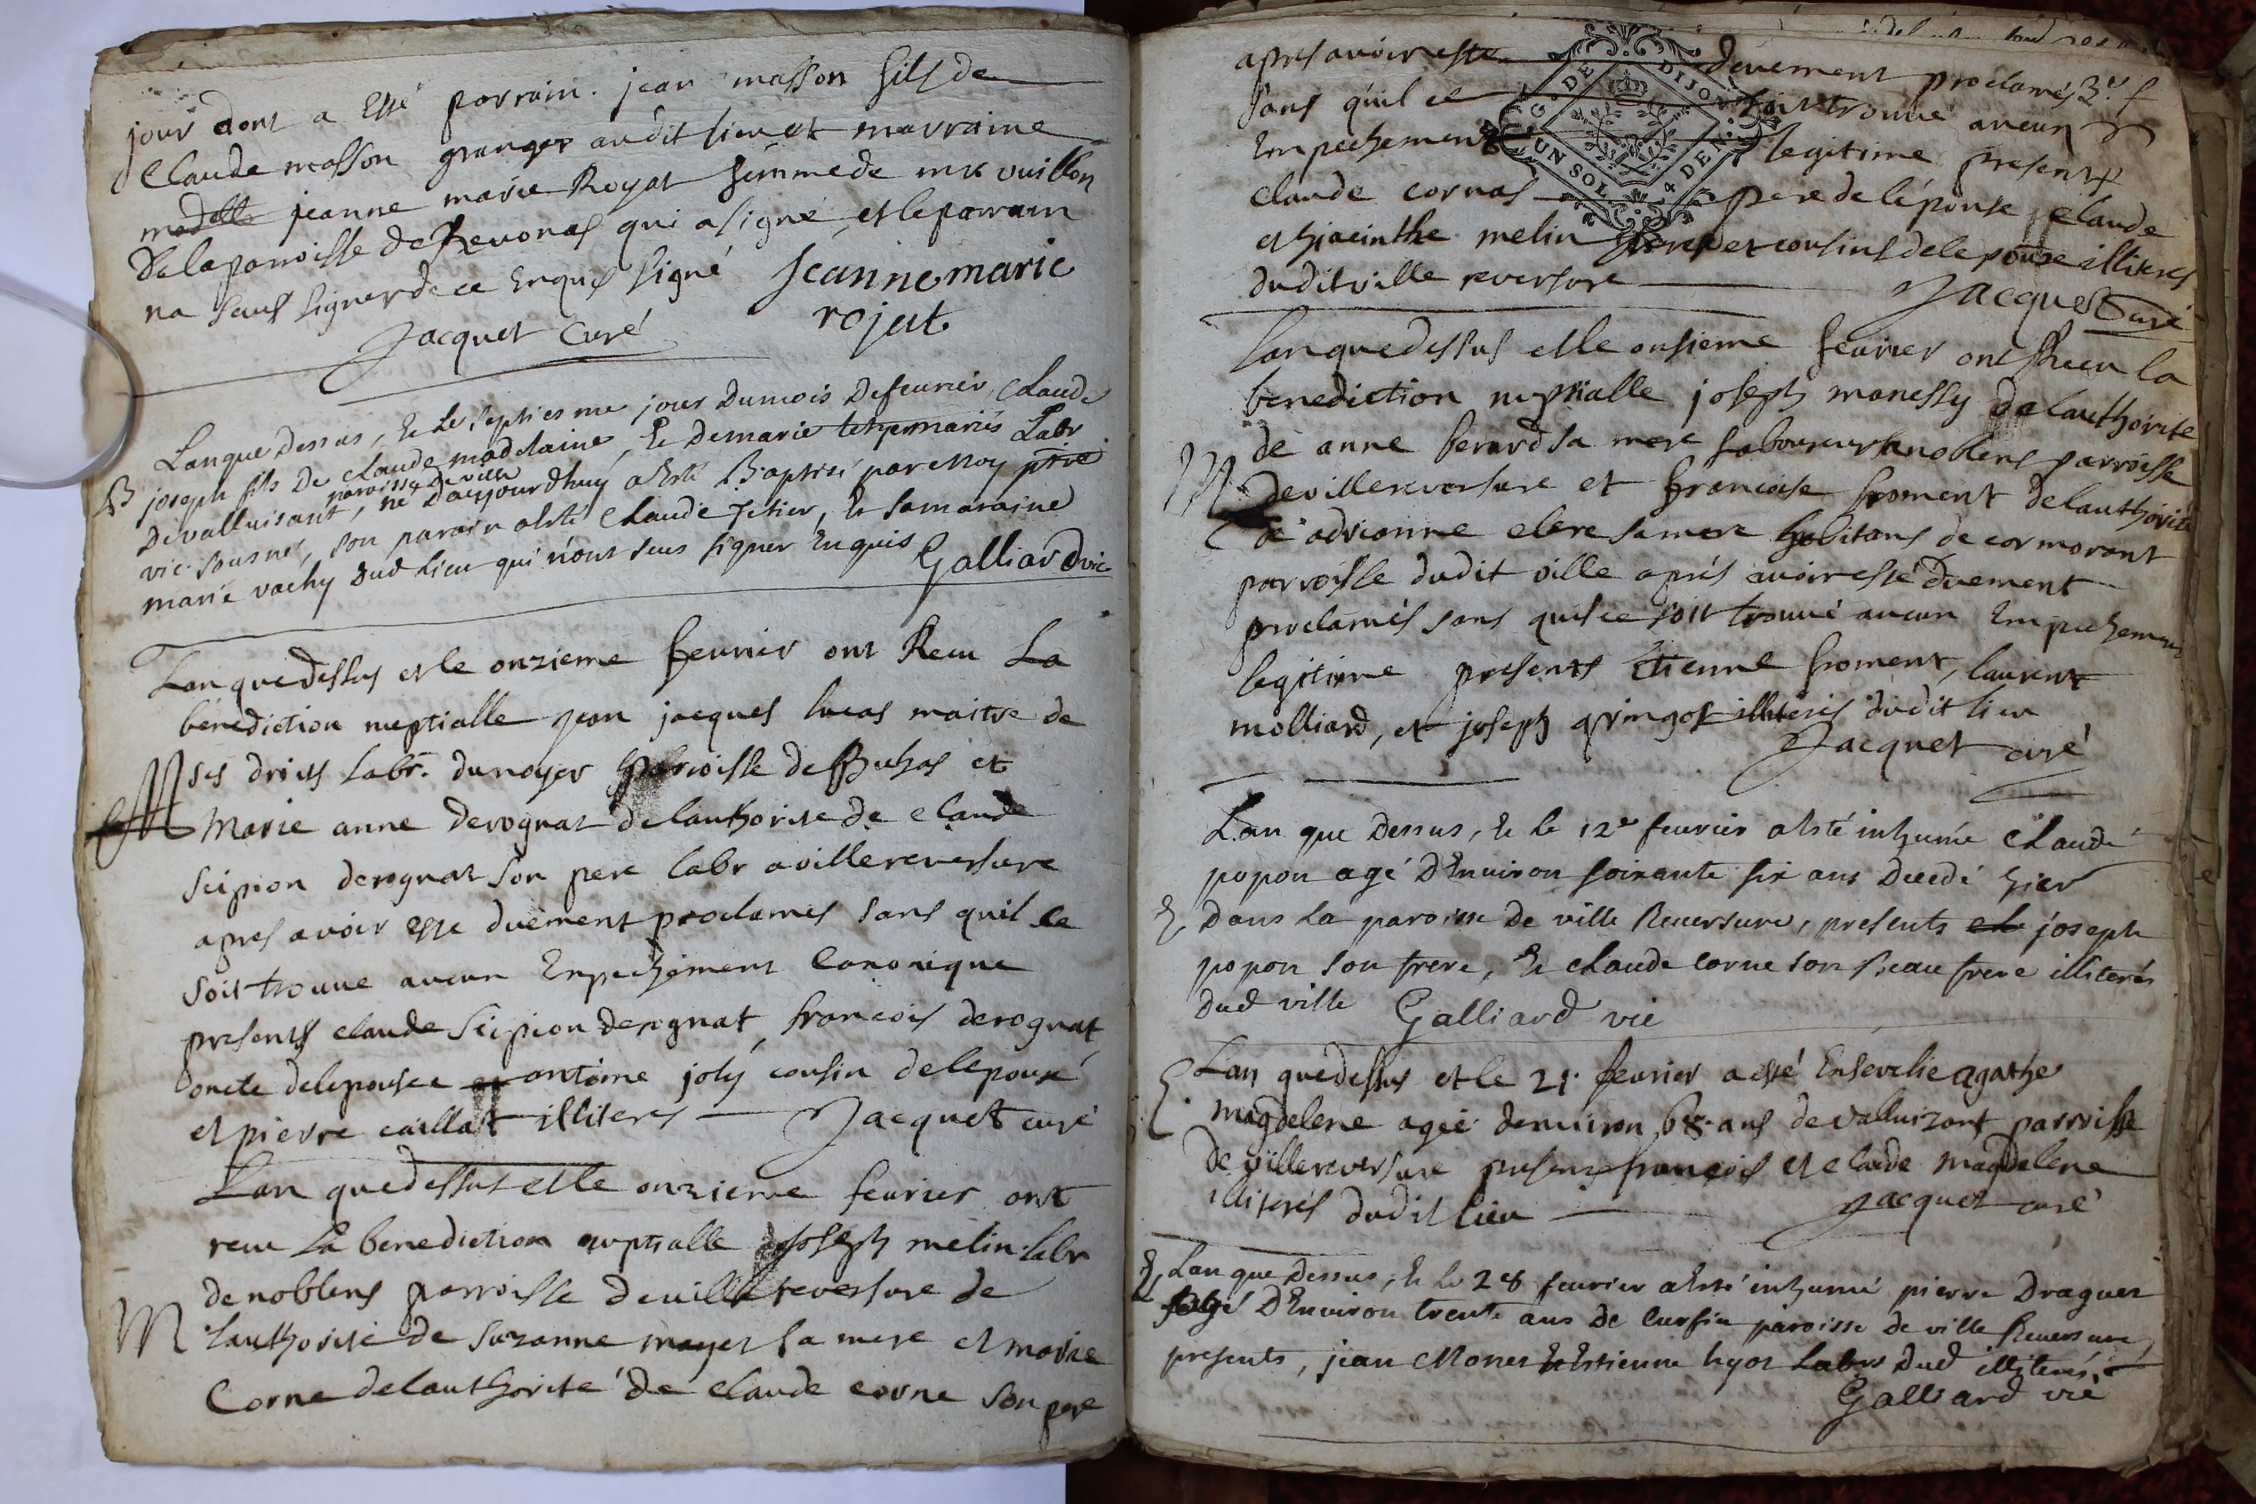 jour dont a esté parrain jean masson fils de
Claude masson granger audit lieu et marraine
jeanne marie Royat femme de mr vuillon
De la parroisse de Revonas qui a signé et le parrain
na sceus signer de ce enquis signé Jeanne marie
rojat
Jacquet Curé
Lan que Dessus, et le septiesme jour Du mois De feurier, Claude
B joseph fils De claude madelaine, et De marie mariés Labr
paroisse de ville
De valluisant, né D'aujourdhuy a esté Baptisé par Moy pbre
vic. sousné, son parain a esté Claude Tetier, et sa maraine
marie vachy dud Lieu qui n'ont sceus signer Enquis Galliard vic
Lan que dessus et le onzieme feurier ont Receu La
benediction nuptialle jean jacques lucas maitre de
M ses droits labr. du noyer parroisse de Buhas et
Marie anne derognat de lauthorité de claude
scipion derognat son pere labr a villereversure
apres avoir esté duement proclamés sans quil ce
soit trouué aucun Enpechement Canonique
presents claude scipion derognat, francois derognat
oncle de lepousee antoine joly cousin de lepoux
et pierre caillat illiteres Jacquet curé
Lan que dessus et le onzieme feurier ont
receu La benediction nuptialle joseph melin labr
de noblens parroisse de villereversure de
M lauthorité de suzanne mayet sa mere et marie
Corne de lauthorité de claude corne son pere
apres avoir esté duement proclamés 3. f
sans quil ce soit trouué aucun
Empechement legitime present
claude cornas pere de l'épouse, claude
et hiacinthe melin freres et cousins de lepouse illiteres
dudit ville reversure Jacquet Curé
G. DE DIJON
UN SOL. 4 DEN.
Lan que dessus et le onsieme feurier ont Receu la
benediction nuptialle joseph monessy de lauthorité
de anne berard sa mere laboureur a noblens parroisse
M de villereversure et francoise froment de lauthorité
de adrianne clere sa mere habitans de cormorant
parroisse dudit ville aprés avoir esté duement
proclamés sans quil ce soit trouué aucun Empechement
legitime presents Etienne froment, laurent
molliard, et joseph gringos illiterés dudit lieu
Jacquet curé
Lan que Dessus, et le 12e feurier a esté inhumé Claude
popon agé D'Enuiron soixante six ans Decedé hier
E dans La paroisse de ville Reuersure, presents joseph
popon son frere, et claude corne son Beau frere illiterés
dud ville Galliard vic
Lan que dessus et le 21. feurier a esté Ensevelie agathe
E. magdelene agée denuiron 68. ans de valluizant parroisse
de villereversure presens francois et claude magdelene
illiterés dudit lieu Jacquet curé
E Lan que Dessus, et le 28 feurier a esté inhumé pierre Draguet
agé D'Enuiron trente ans De Cursin paroisse de ville Reuersure,
presents, jean Moner et Estienne hyot Labrs Dud illiterés
Galliard vic